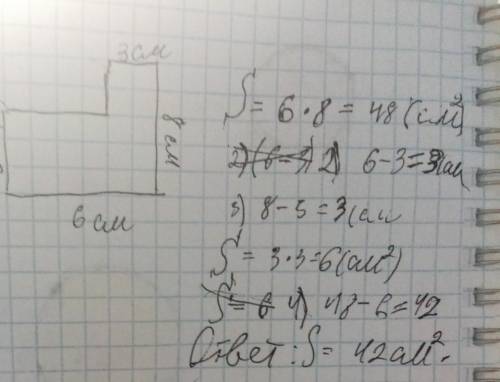 3см
8 см
6 см
S = 6 · 8 = 48 (см²)
2) (6-3) 2) 6-3=3(см
3) 8-5=3(см
S = 3·3=6(см²)
S = 6 4) 48-6=42
Ответ: S = 42см².